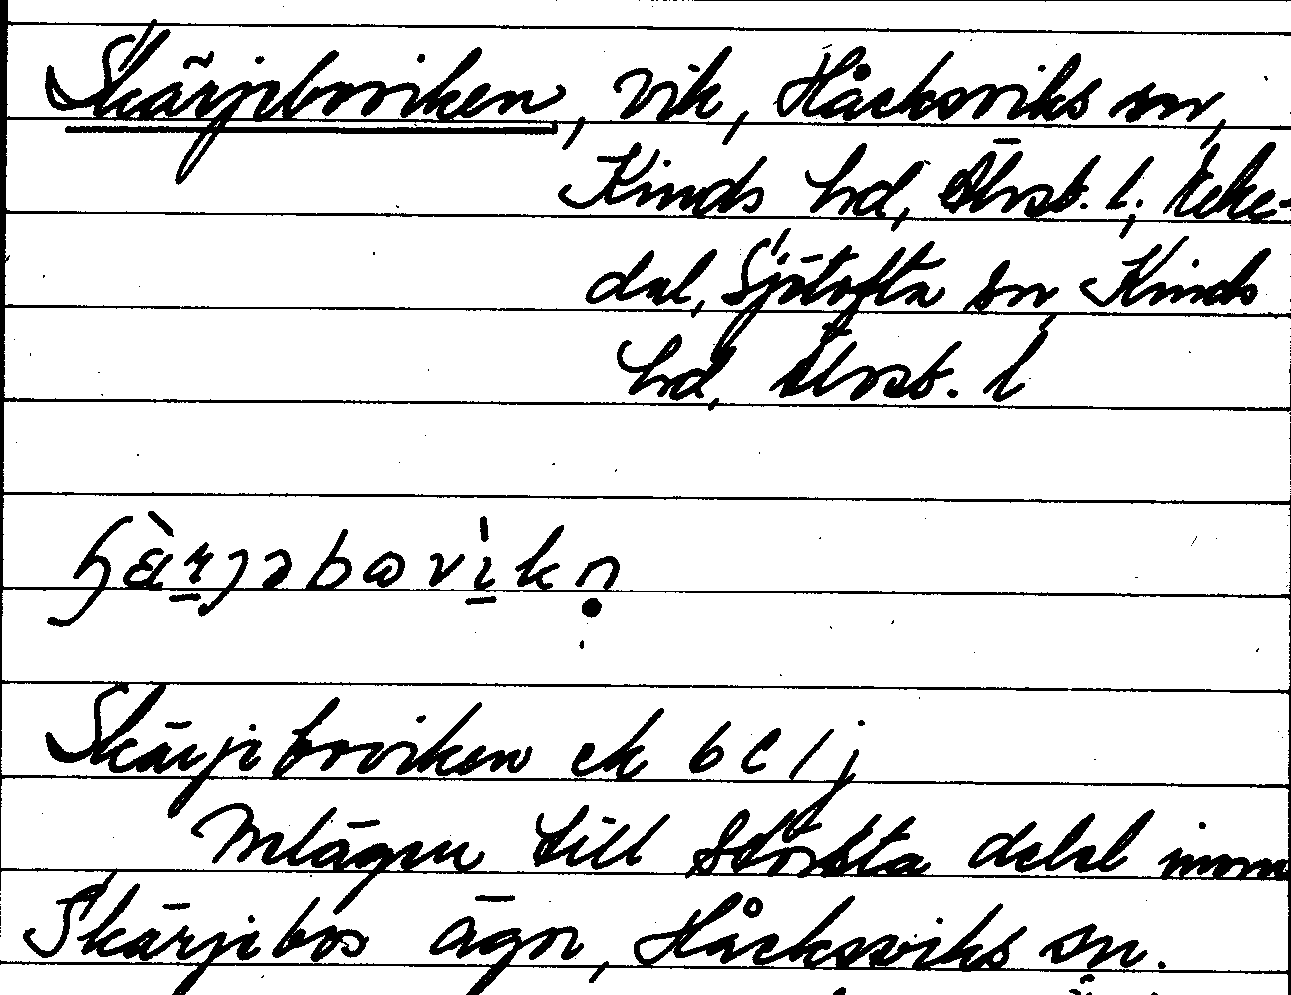 Skärjeboviken, vik, Håcksviks sn,
Kinds hd, Älvsb. l; Eke-
dal, Sjötofta sn, Kinds
hd, Älvsb. l
Skärjeboviken ek 6 C 1 j
Inlägen till största delen inom
Skärjebos ägor, Håcksviks sn.